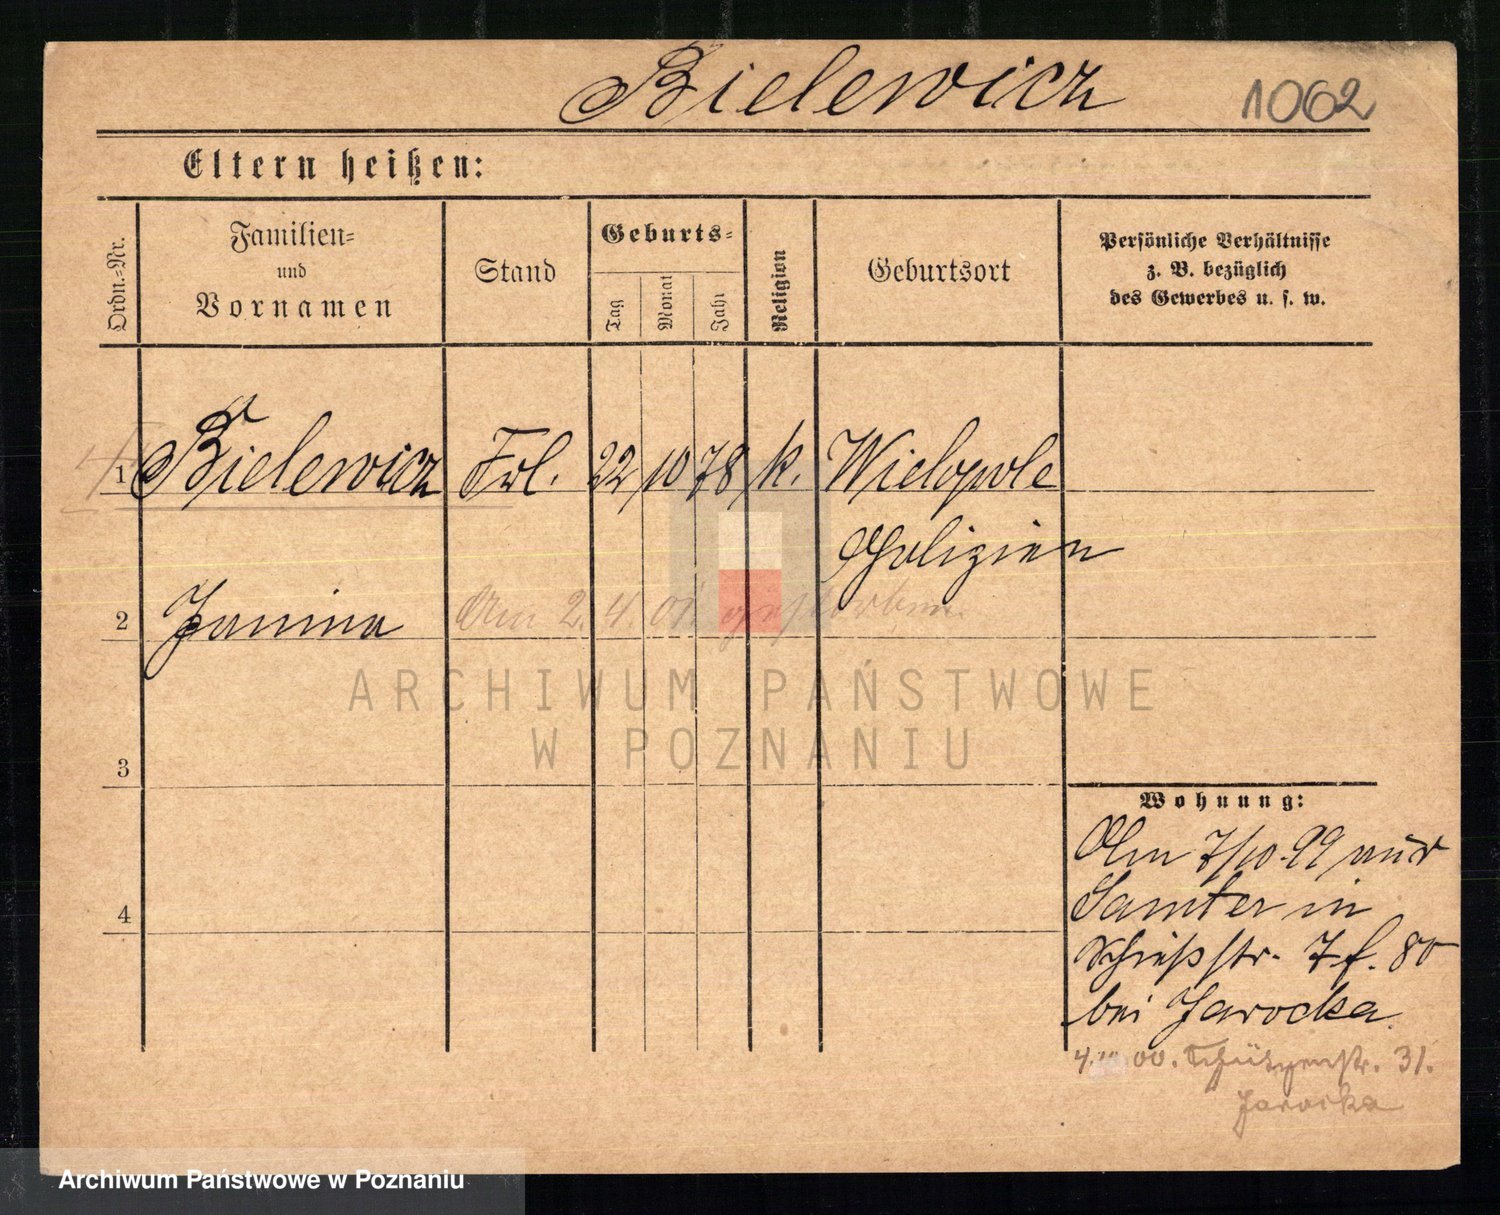 Bielewicz
1062
Eltern heißen:
Ordn.-Nr.
Familien-
und
Vornamen
Stand
Geburts-
Tag
Monat
Jahr
Religion
Geburtsort
Persönliche Verhältnisse
z. B. bezüglich
des Gewerbes u. s. w.
1 Bielewicz Frl. 22/10 78 k. Wielopole
Galizien
2 Janina Am 2. 4. 01. gestorben.
ARCHIWUM PAŃSTWOWE
W POZNANIU
3
Wohnung:
Am 7/10. 99 aus
Samter in
4
Schießstr. 7 f. 80
bei Jarocka
4. 00. Schützenstr. 31.
Jarocka
Archiwum Państwowe w Poznaniu